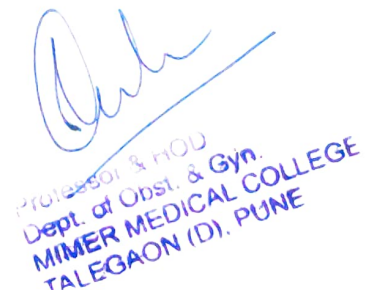 Professor & HOD
Dept. of Obst. & Gyn.
MIMER MEDICAL COLLEGE
TALEGAON (D). PUNE